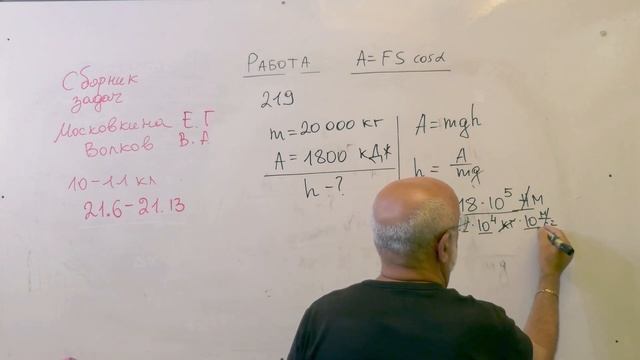 Сборник
задач
Московкина Е. Г
Волков В. А
10-11 кл
21.6-21.13
РАБОТА A=FS cosα
219
m=20 000 кг
A=1800 кДж
h-?
A=mgh
h = A/mg
18·10⁵ Н м
10⁴ кг · 10 м/с²